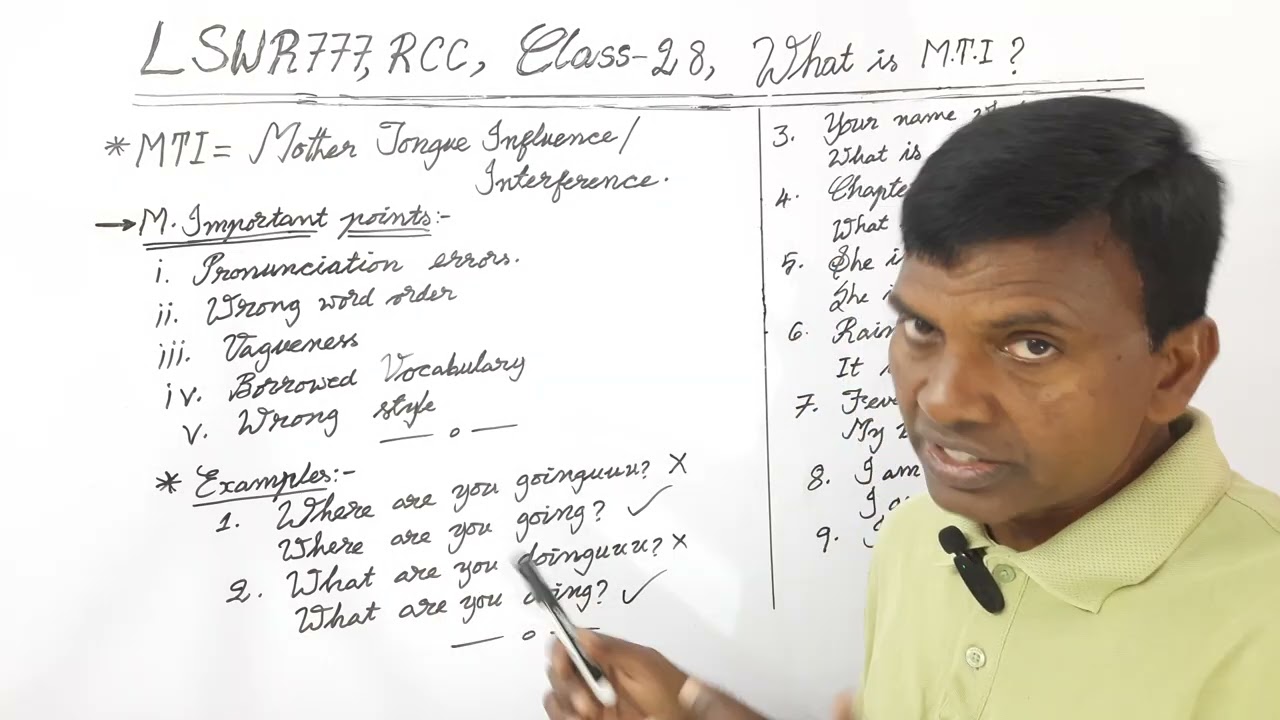 LSWR777, RCC, Class-28, What is M.T.I ?
* MTI = Mother Tongue Influence/
Interference.
→ M. Important points:-
i. Pronunciation errors.
ii. Wrong word order
iii. Vagueness
iv. Borrowed Vocabulary
v. Wrong style
— o —
* Examples:-
1. Where are you goinguuu? X
Where are you going? ✓
2. What are you doinguuu? X
What are you doing? ✓
— o —
3. Your name
What is
4.
What
5. She
She
6.
It
7.
My
8. I am
I
9.